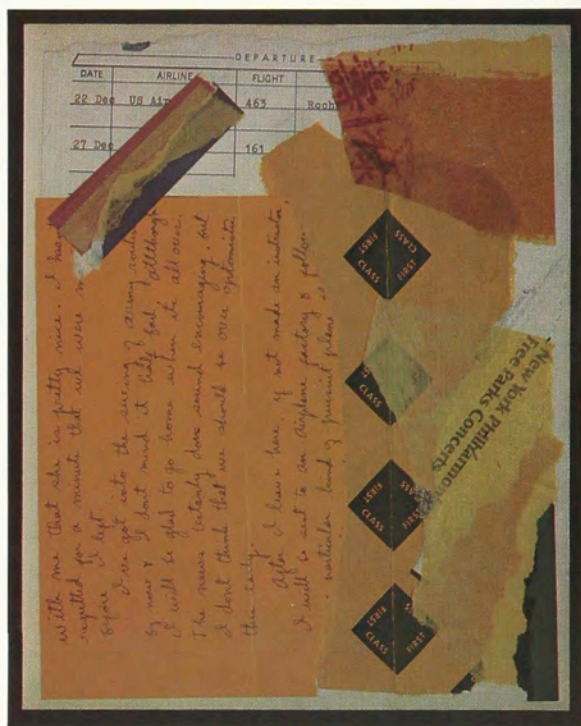 DEPARTURE
DATE AIRLINE FLIGHT
22 Dec US Air 463 Roch
27 Dec 161
with me that she is pretty nice. I
regretted for a minute that we were
before I left
I've got into the swing of army
by now & I dont mind it bad, allthough
I will be glad to go home when its all over.
The news certanly does sound encouraging, but
I dont think that we should be over optomistic
this early.
After I leave here, if not made an instructor,
I will be sent to an airplane factory & follow
particular kind of pursuit plane
FIRST CLASS
CLASS FIRST
CLASS
FIRST
CLASS FIRST
FIRST
CLASS FIRST
New York Philharmon
Free Parks Concerts